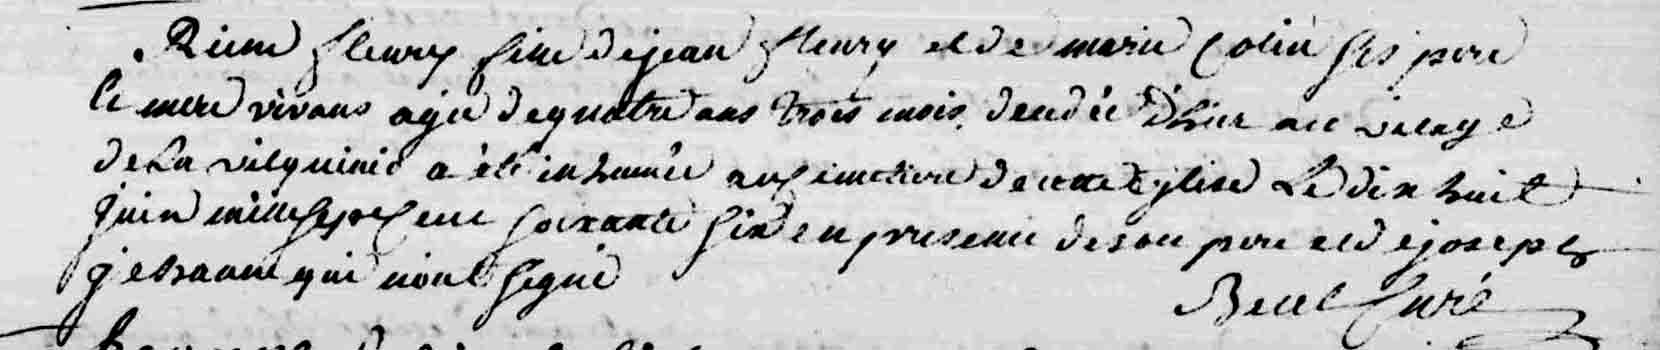 fleury fille de jean fleury et de marie Colin ses pere
et mere vivans agée de quatre ans trois mois decedée d'hier au vilage
de La vilquinio a été inhumée au simetiere de cette Eglise Le dix huit
juin mille sept cent soixante six en presence de son pere et de joseph
jehanne qui n'ont signé
Curé